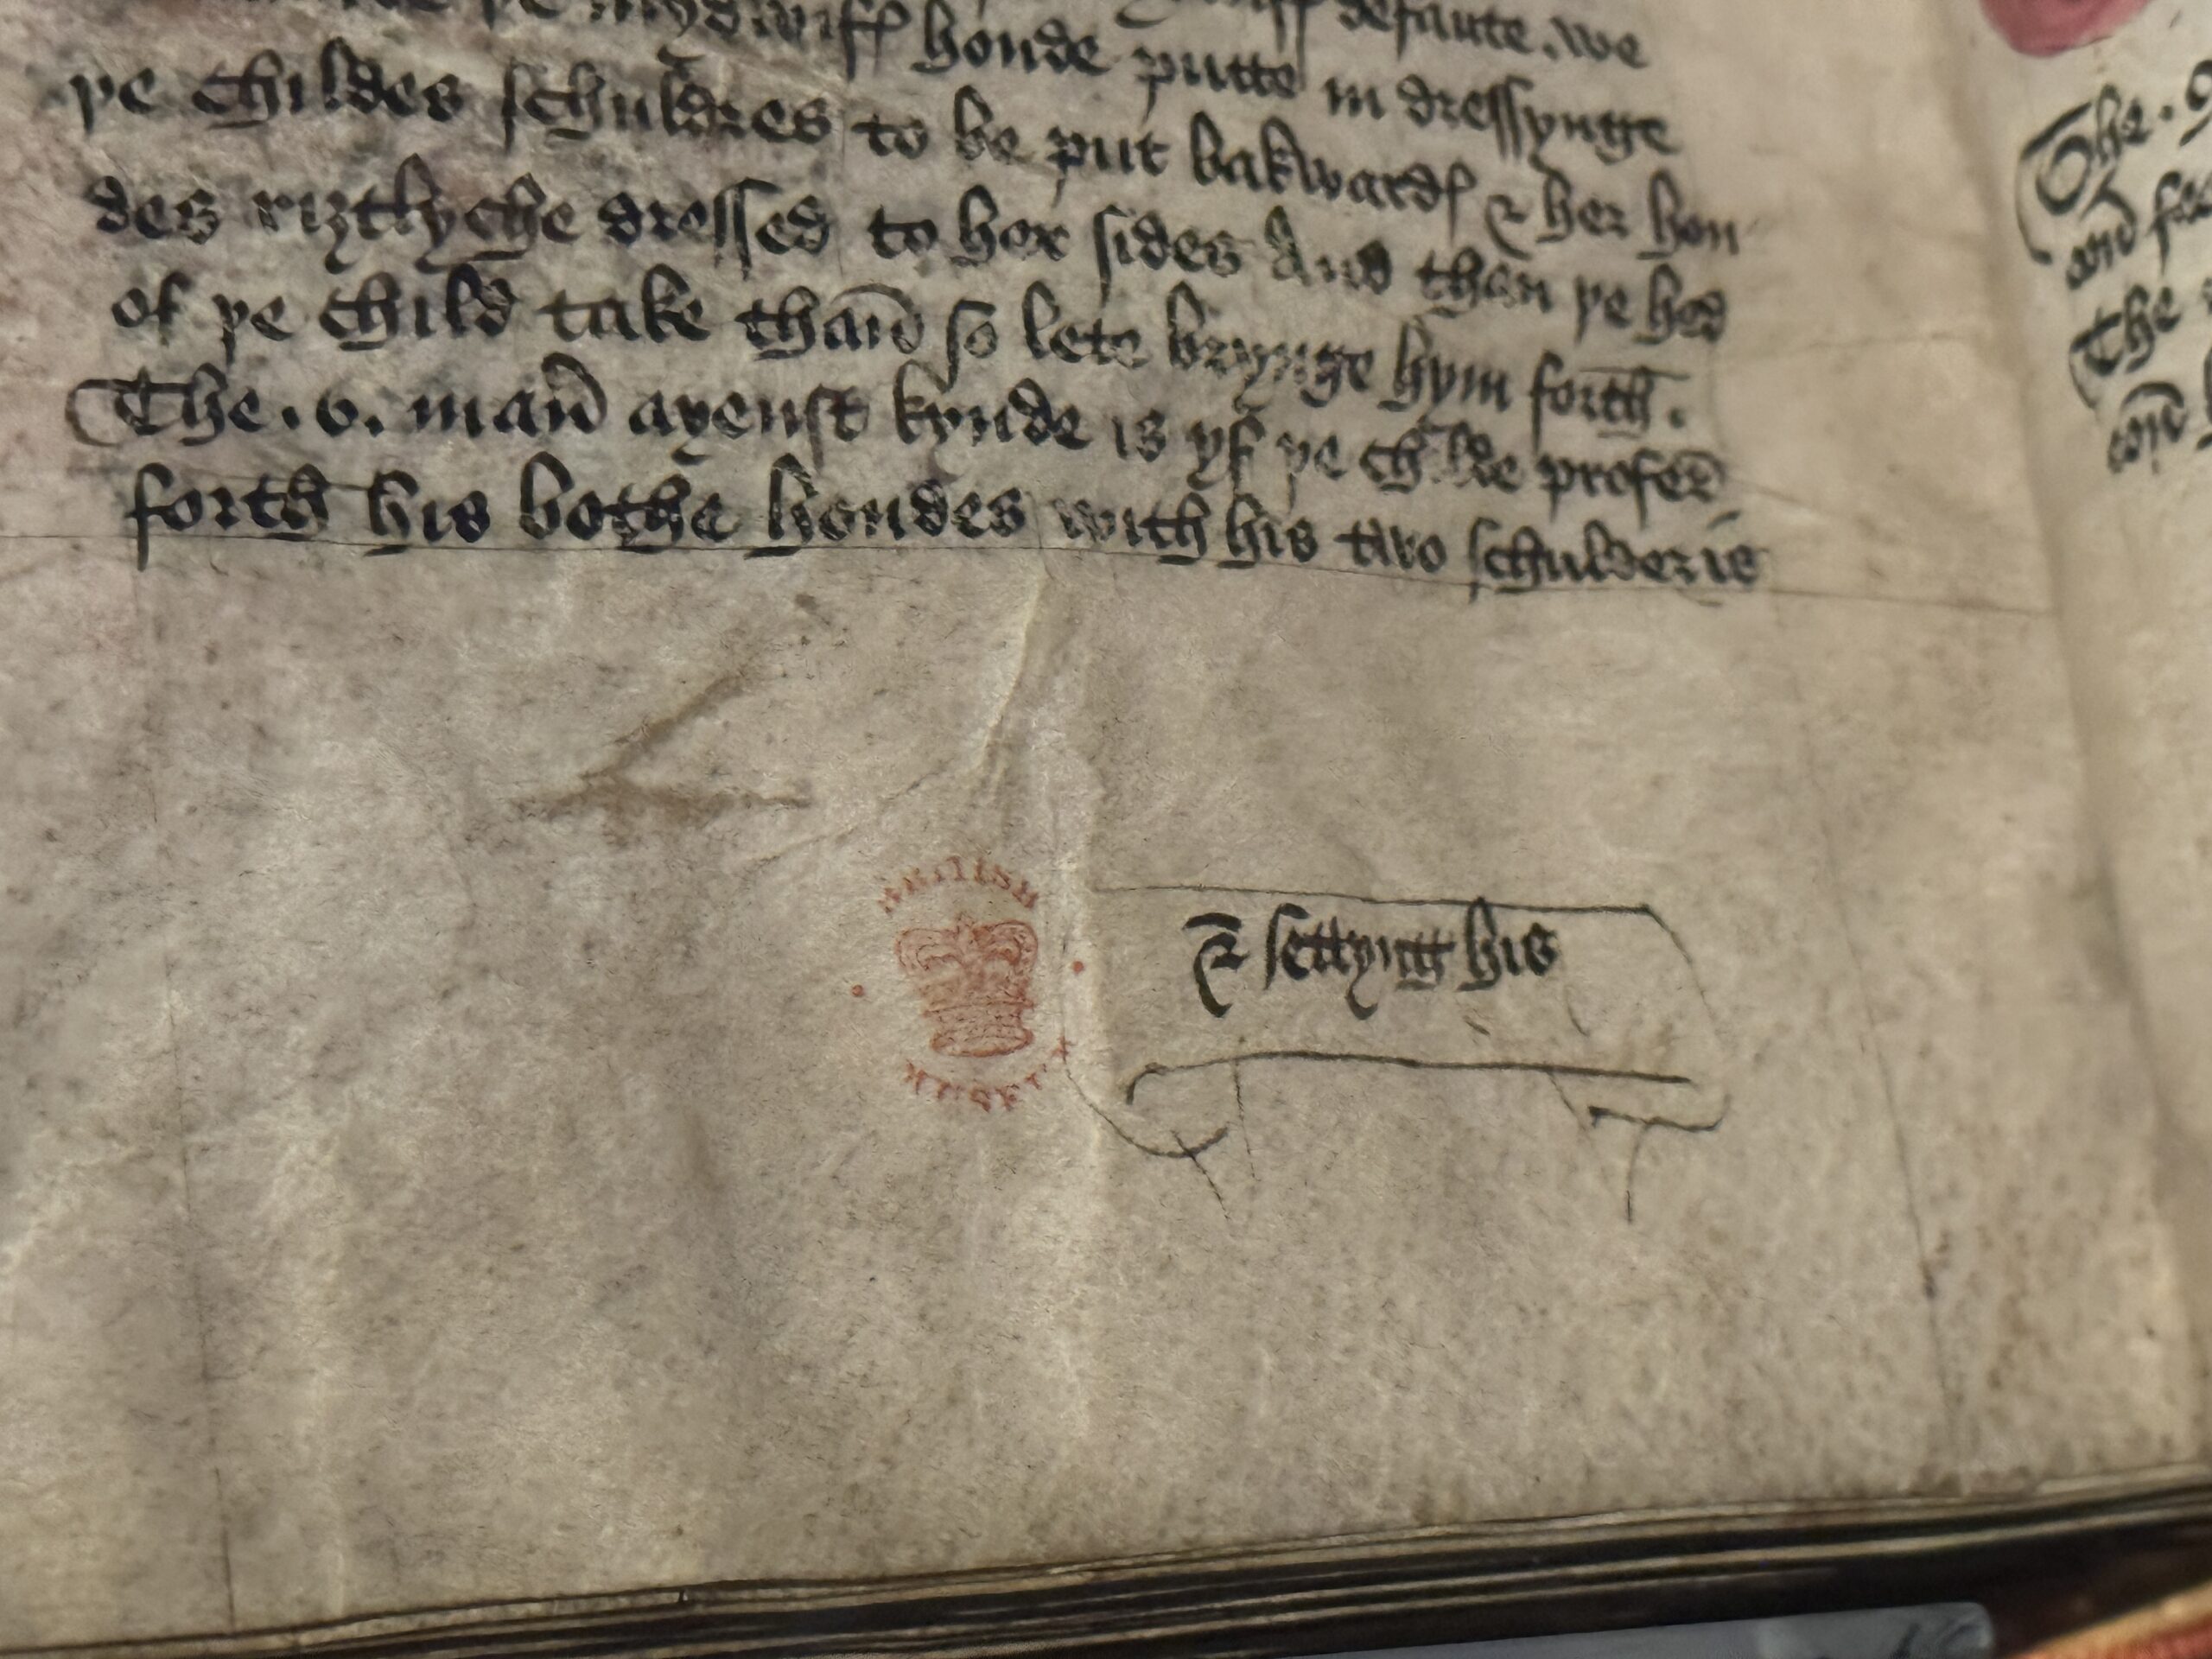 þe mydwiff honde putte in dressynge
defaute. we
þe childes schuldres to be put bakward & her hon
des riȝtlyche dressed to her sides And than þe hed
of þe child take than̄ so lete brynge hym forth.
The .v. man̄ ayenst kynde is yf þe childe profer̄
forth his bothe hondes with his two schulderis
& settyng his
BRITISH
MUSEUM
The .
and
The